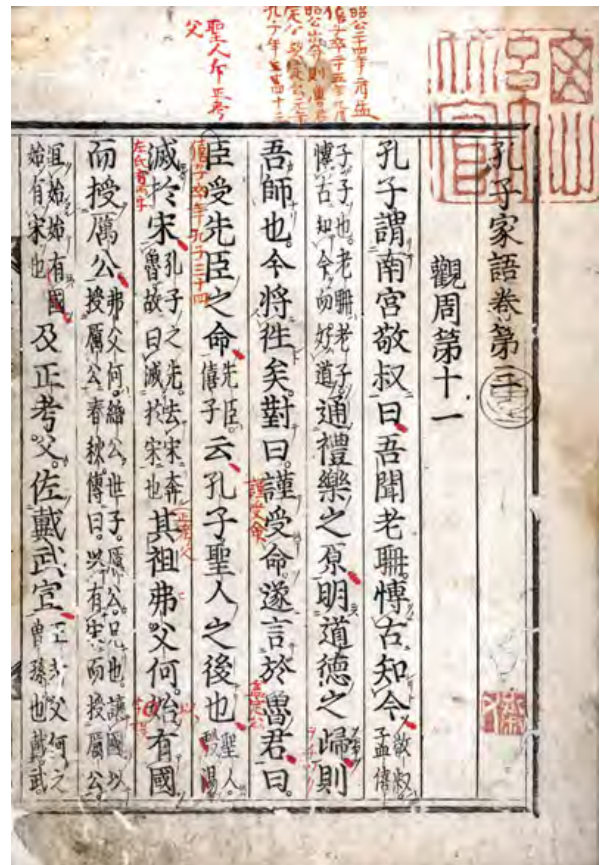 孔子家語卷第三
觀周第十一
孔子謂南宮敬叔曰。吾聞老聃。愽古知今。敬叔孟僖
子子也。老聃老子愽古知今而好道通禮樂之原。明道德之歸。則
吾師也。今將徃矣。對曰。謹受命。遂言於魯君曰。
臣受先臣之命。先臣。僖子云。孔子聖人之後也。聖人。殷湯
滅於宋。孔子之先。去宋奔魯。故曰滅於宋也其祖弗父何。始有國
而授厲公。弗父何。緡公世子。厲公兄也。讓國以授厲公。春秋傳曰。以有宋而授厲公。
始有國始有宋也及正考父。佐戴武宣。正考父何之曾孫也戴武
聖人斥正考
父
謹受命
正考父